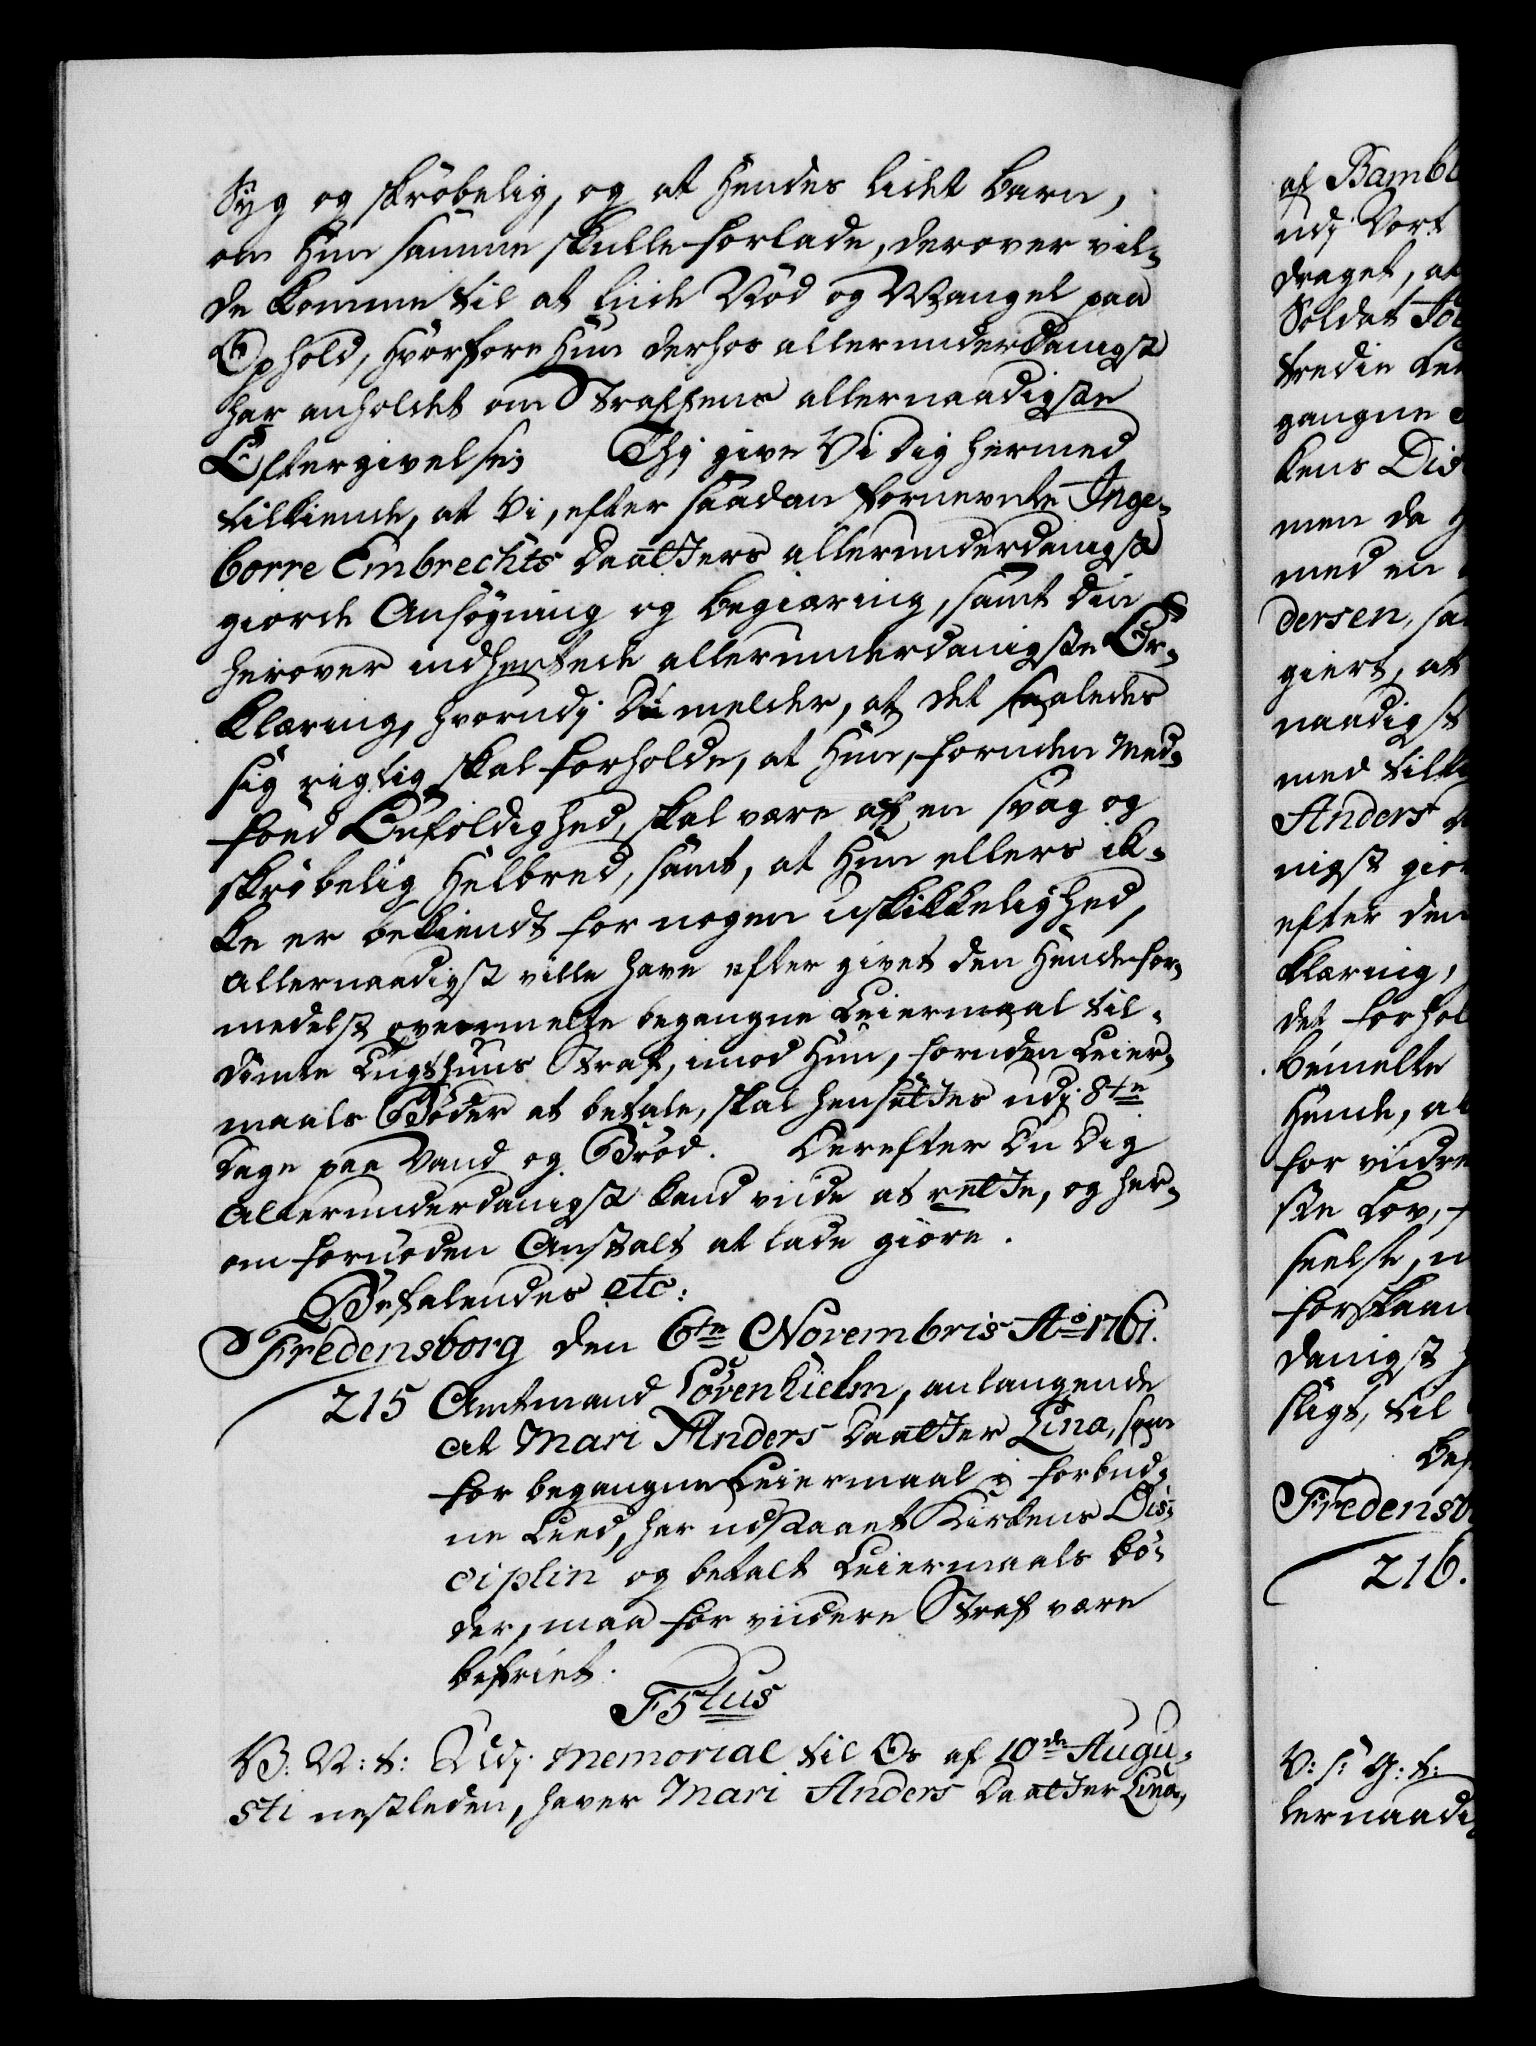 Syg og skrøbelig, og at Hendes lidet Barn,
om Hun samme skulle forlade, derover vil-
de komme til at liide Nød og Mangel paa
Ophold, hvorfore Hun derhos allerunderdanigst
har anholdet om Straffens allernaadigste
Eftergivelse; Thj give Vi Dig hermed
tilkiende, at Vi, efter saadan fornevnte Inge-
borre Embrechts Daatters allerunderdanigst
giorde Ansøgning og begiæring, samt Din
herover indhentede allerunderdanigste Er-
klæring, hvorudj Du melder, at det saaledes
sig rigtig skal forholde, at Hun, foruden Med-
føed Eenfoldighed, skal være af en svag og
skrøbelig Helbred, samt, at Hun ellers ik-
ke er bekiendt for nogen uskikkelighed,
Allernaadigst ville have efter givet den Hende for-
medelst ovenmelte begangne Leiermaal til-
dømte Tugthuus Straf, imod Hun, foruden Leier-
maals Bøder at betale, skal hensættes udj 8te
Dage paa Vand og Brød. Derefter Du Dig
Allerunderdanigst kand viide at rette, og her-
om fornøden Anstalt at lade giøre.
Befalendes etc:
Fredensborg den 6te Novembris Ao 1761.
215 Amtmand Løvenskield, anlangende
at Mari Anders Daatter Lina, som
for begangne Leiermaal i forbud-
ne Leed, har udstaaet Kirkens Dis-
ciplin og betalt Leiermaals bø-
der, maa for viidere Straf være
befriet.
F5tus
V: V: t: Udj Memorial til Os af 10de Augu-
sti nestleden, haver Mari Anders Daatter Lina,
af Bambl
udj Vort
draget, at
Soldat
tredie Lei
gangne
kens Dis
men da H
med en
dersen, sa
giert, at
naadigst
med tilki
Anders D
nigst gior
efter den
klæring,
det forhol
bemelte
Hende, at
for viidre
ste Lov, f
seelse, n
forskaan
danigst
sligt, til
Bef
Fredensb
216.
V: s: G: t:
lernaadig